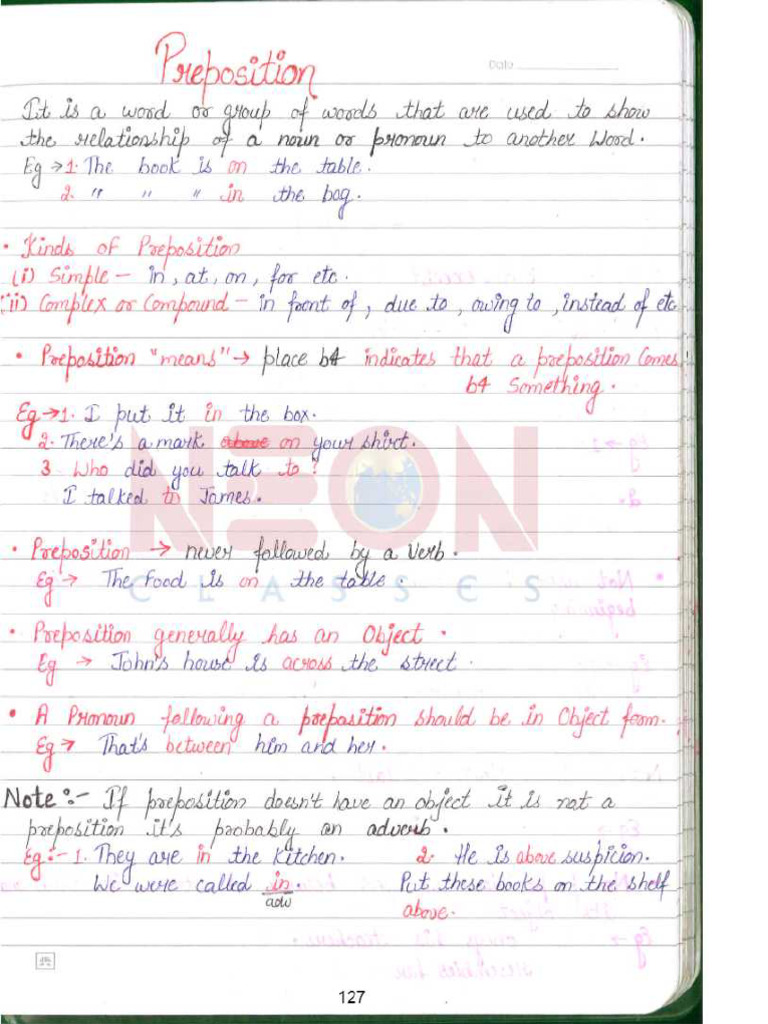 Preposition
Date
It is a word or group of words that are used to show
the relationship of a noun or pronoun to another Word.
Eg → 1. The book is on the table.
2. " " " in the bag.
• Kinds of Preposition
(i) Simple – in, at, on, for etc.
(ii) Complex or Compound – in front of, due to, owing to, instead of etc
• Preposition "means" → place b4 indicates that a preposition Comes
b4 Something.
Eg → 1. I put it in the box.
2. There's a mark above on your shirt.
3 Who did you talk to?
I talked to James.
NEON
CLASSES
• Preposition → never followed by a Verb.
Eg → The Food is on the table.
• Preposition generally has an Object.
Eg → John's house is across the street.
• A Pronoun following a preposition should be in Object form.
Eg → That's between him and her.
Note :- If preposition doesn't have an object it is not a
preposition it's probably an adverb.
Eg :- 1. They are in the Kitchen. 2. He is above suspicion.
We were called in. Put these books on the shelf
adv
above.
127